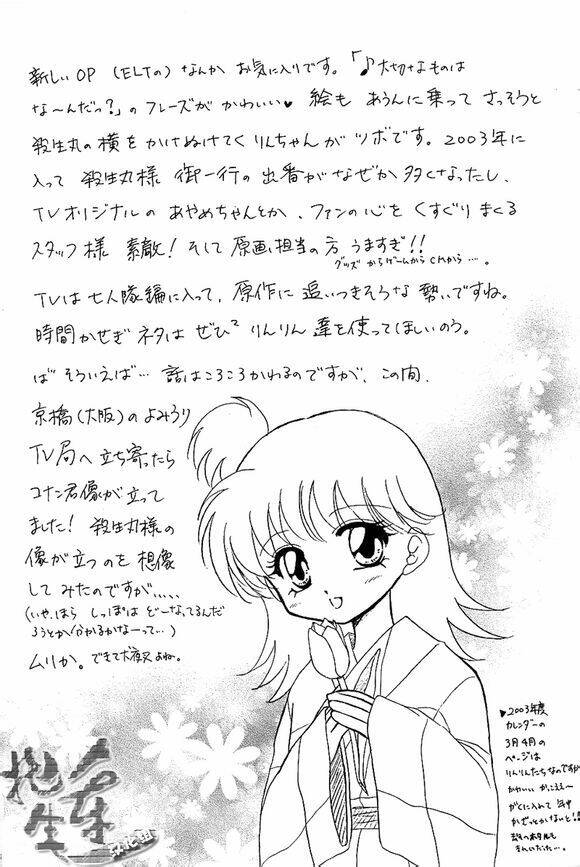 新しいOP (ELTの) なんか お気に入りです。「♪大切なものは
な〜んだっ?」のフレーズが かわいい♥ 絵も あうんに乗って さっそうと
殺生丸の横を かけぬけてく りんちゃんが ツボです。2003年に
入って 殺生丸様 御一行の 出番が なぜか 多くなったし、
TVオリジナルの あやめちゃんとか、ファンの心を くすぐり まくる
スタッフ様 素敵! そして 原画担当の方 うますぎ!!
グッズ からゲームから CMから…。
TVは七人隊編に入って、原作に 追いつきそうな 勢いですね。
時間かせぎ ネタは ぜひ² りんりん達を使ってほしいのう。
ばそういえば… 話はころころかわるのですが、この間、
京橋(大阪)の よみうり
TV局へ 立ち寄ったら
コナン君像が立って
ました! 殺生丸様の
像が立つのを 想像
して みたのですが.....
(いや、ほら しっぽは どーなってるんだ
ろうとか 分かるかなーって…)
ムリか。できて犬夜叉よね。
▶2003年度
カレンダーの
3月4月の
ページは
りんりんたちなのですが
かわいい かっこええ〜
がくに入れて 年中
かざっとかないと!!